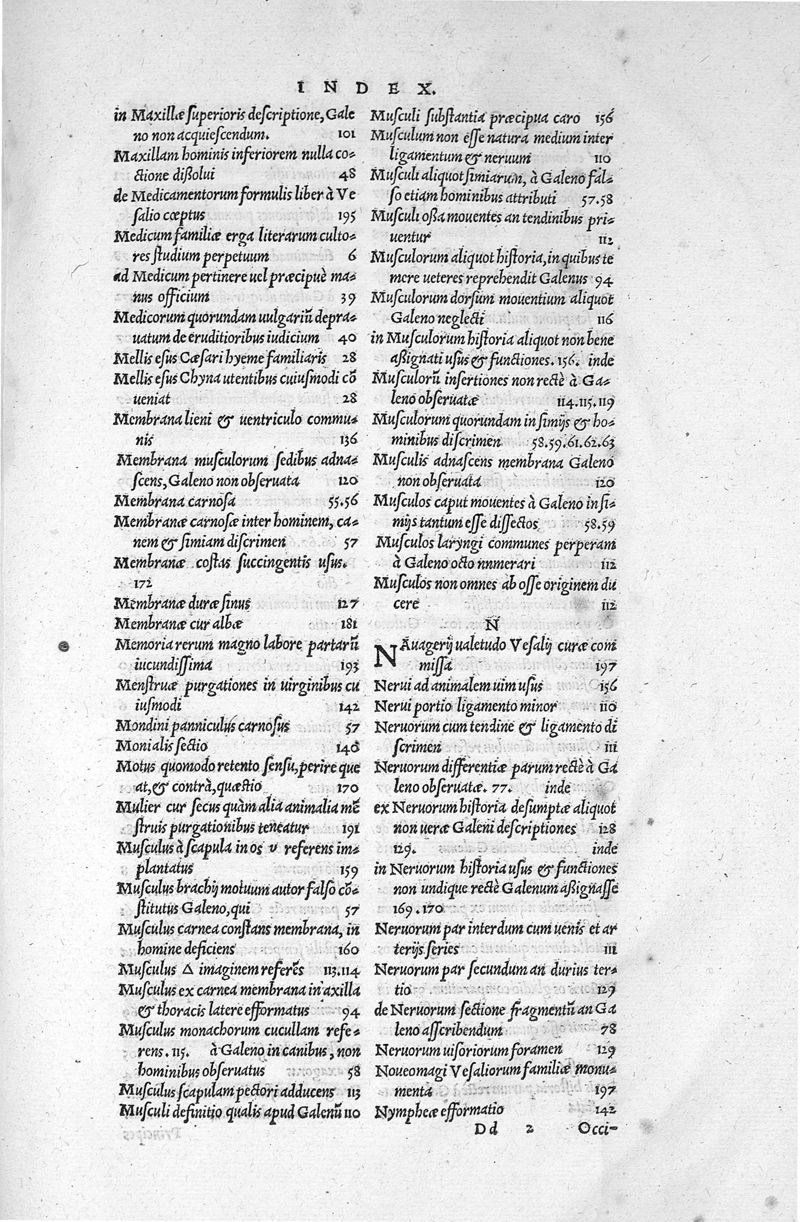 INDEX.
in Maxillæ superioris descriptione, Gale
no non acquiescendum. 101
Maxillam hominis inferiorem nulla co-
ctione dißolui 48
de Medicamentorum formulis liber à Ve
salio cœptus 195
Medicum familiæ erga literarum culto-
res studium perpetuum 6
ad Medicum pertinere uel præcipuè ma-
nus officium 39
Medicorum quorundam uulgariũ depra-
uatum de eruditioribus iudicium 40
Mellis esus Cæsari hyeme familiaris 28
Mellis esus Chyna utentibus cuiusmodi cõ
ueniat 28
Membrana lieni & uentriculo commu-
nis 136
Membrana musculorum sedibus adna-
scens, Galeno non obseruata 120
Membrana carnosa 55.56
Membranæ carnosæ inter hominem, ca-
nem & simiam discrimen 57
Membranæ costas succingentis usus.
172
Membranæ duræ sinus 127
Membranæ cur albæ 181
Memoria rerum magno labore partarũ
iucundissima 193
Menstruæ purgationes in uirginibus cu
iusmodi 142
Mondini panniculus carnosus 57
Monialis sectio 140
Motus quomodo retento sensu, perire que
at, & contrà, quæstio 170
Mulier cur secus quàm alia animalia mẽ
struis purgationibus teneatur 191
Musculus à scapula in os υ referens im-
plantatus 159
Musculus brachij motuum autor falso cõ-
stitutus Galeno, qui 57
Musculus carnea constans membrana, in
homine deficiens 160
Musculus Δ imaginem referẽs 113.114
Musculus ex carnea membrana in axilla
& thoracis latere efformatus 94
Musculus monachorum cucullam refe-
rens. 115. à Galeno in canibus, non
hominibus obseruatus 58
Musculus scapulam pectori adducens 113
Musculi definitio qualis apud Galenũ 110
Musculi substantia præcipua caro 156
Musculum non esse natura medium inter
ligamentum & neruum 110
Musculi aliquot simiarum, à Galeno fal-
so etiam hominibus attributi 57.58
Musculi oßa mouentes an tendinibus pri-
uentur 112
Musculorum aliquot historia, in quibus te
mere ueteres reprehendit Galenus 94
Musculorum dorsum mouentium aliquot
Galeno neglecti 116
in Musculorum historia aliquot non bene
aßignati usus & functiones. 156. inde
Musculorũ insertiones non rectè à Ga-
leno obseruatæ 114.115.119
Musculorum quorundam in simijs & ho-
minibus discrimen 58.59.61.62.63
Musculis adnascens membrana Galeno
non obseruata 120
Musculos caput mouentes à Galeno in si-
mijs tantum esse dissectos 58.59
Musculos laryngi communes perperam
à Galeno octo nnmerari 112
Musculos non omnes ab osse originem du
cere 112
N
NAuagerij ualetudo Vesalij curæ com
missa 197
Nerui ad animalem uim usus 156
Nerui portio ligamento minor 110
Neruorum cum tendine & ligamento di
scrimen 111
Neruorum differentiæ parum rectè à Ga
leno obseruatæ. 77. inde
ex Neruorum historia desumptæ aliquot
non ueræ Galeni descriptiones 128
129. inde
in Neruorum historia usus & functiones
non undique rectè Galenum aßignasse
169.170
Neruorum par interdum cum uenis et ar
terijs series 111
Neruorum par secundum an durius ter-
tio 129
de Neruorum sectione fragmentũ an Ga
leno asscribendum 78
Neruorum uisoriorum foramen 129
Noueomagi Vesaliorum familiæ monu-
menta 197
Nympheæ efformatio 142
Dd 2 Occi-